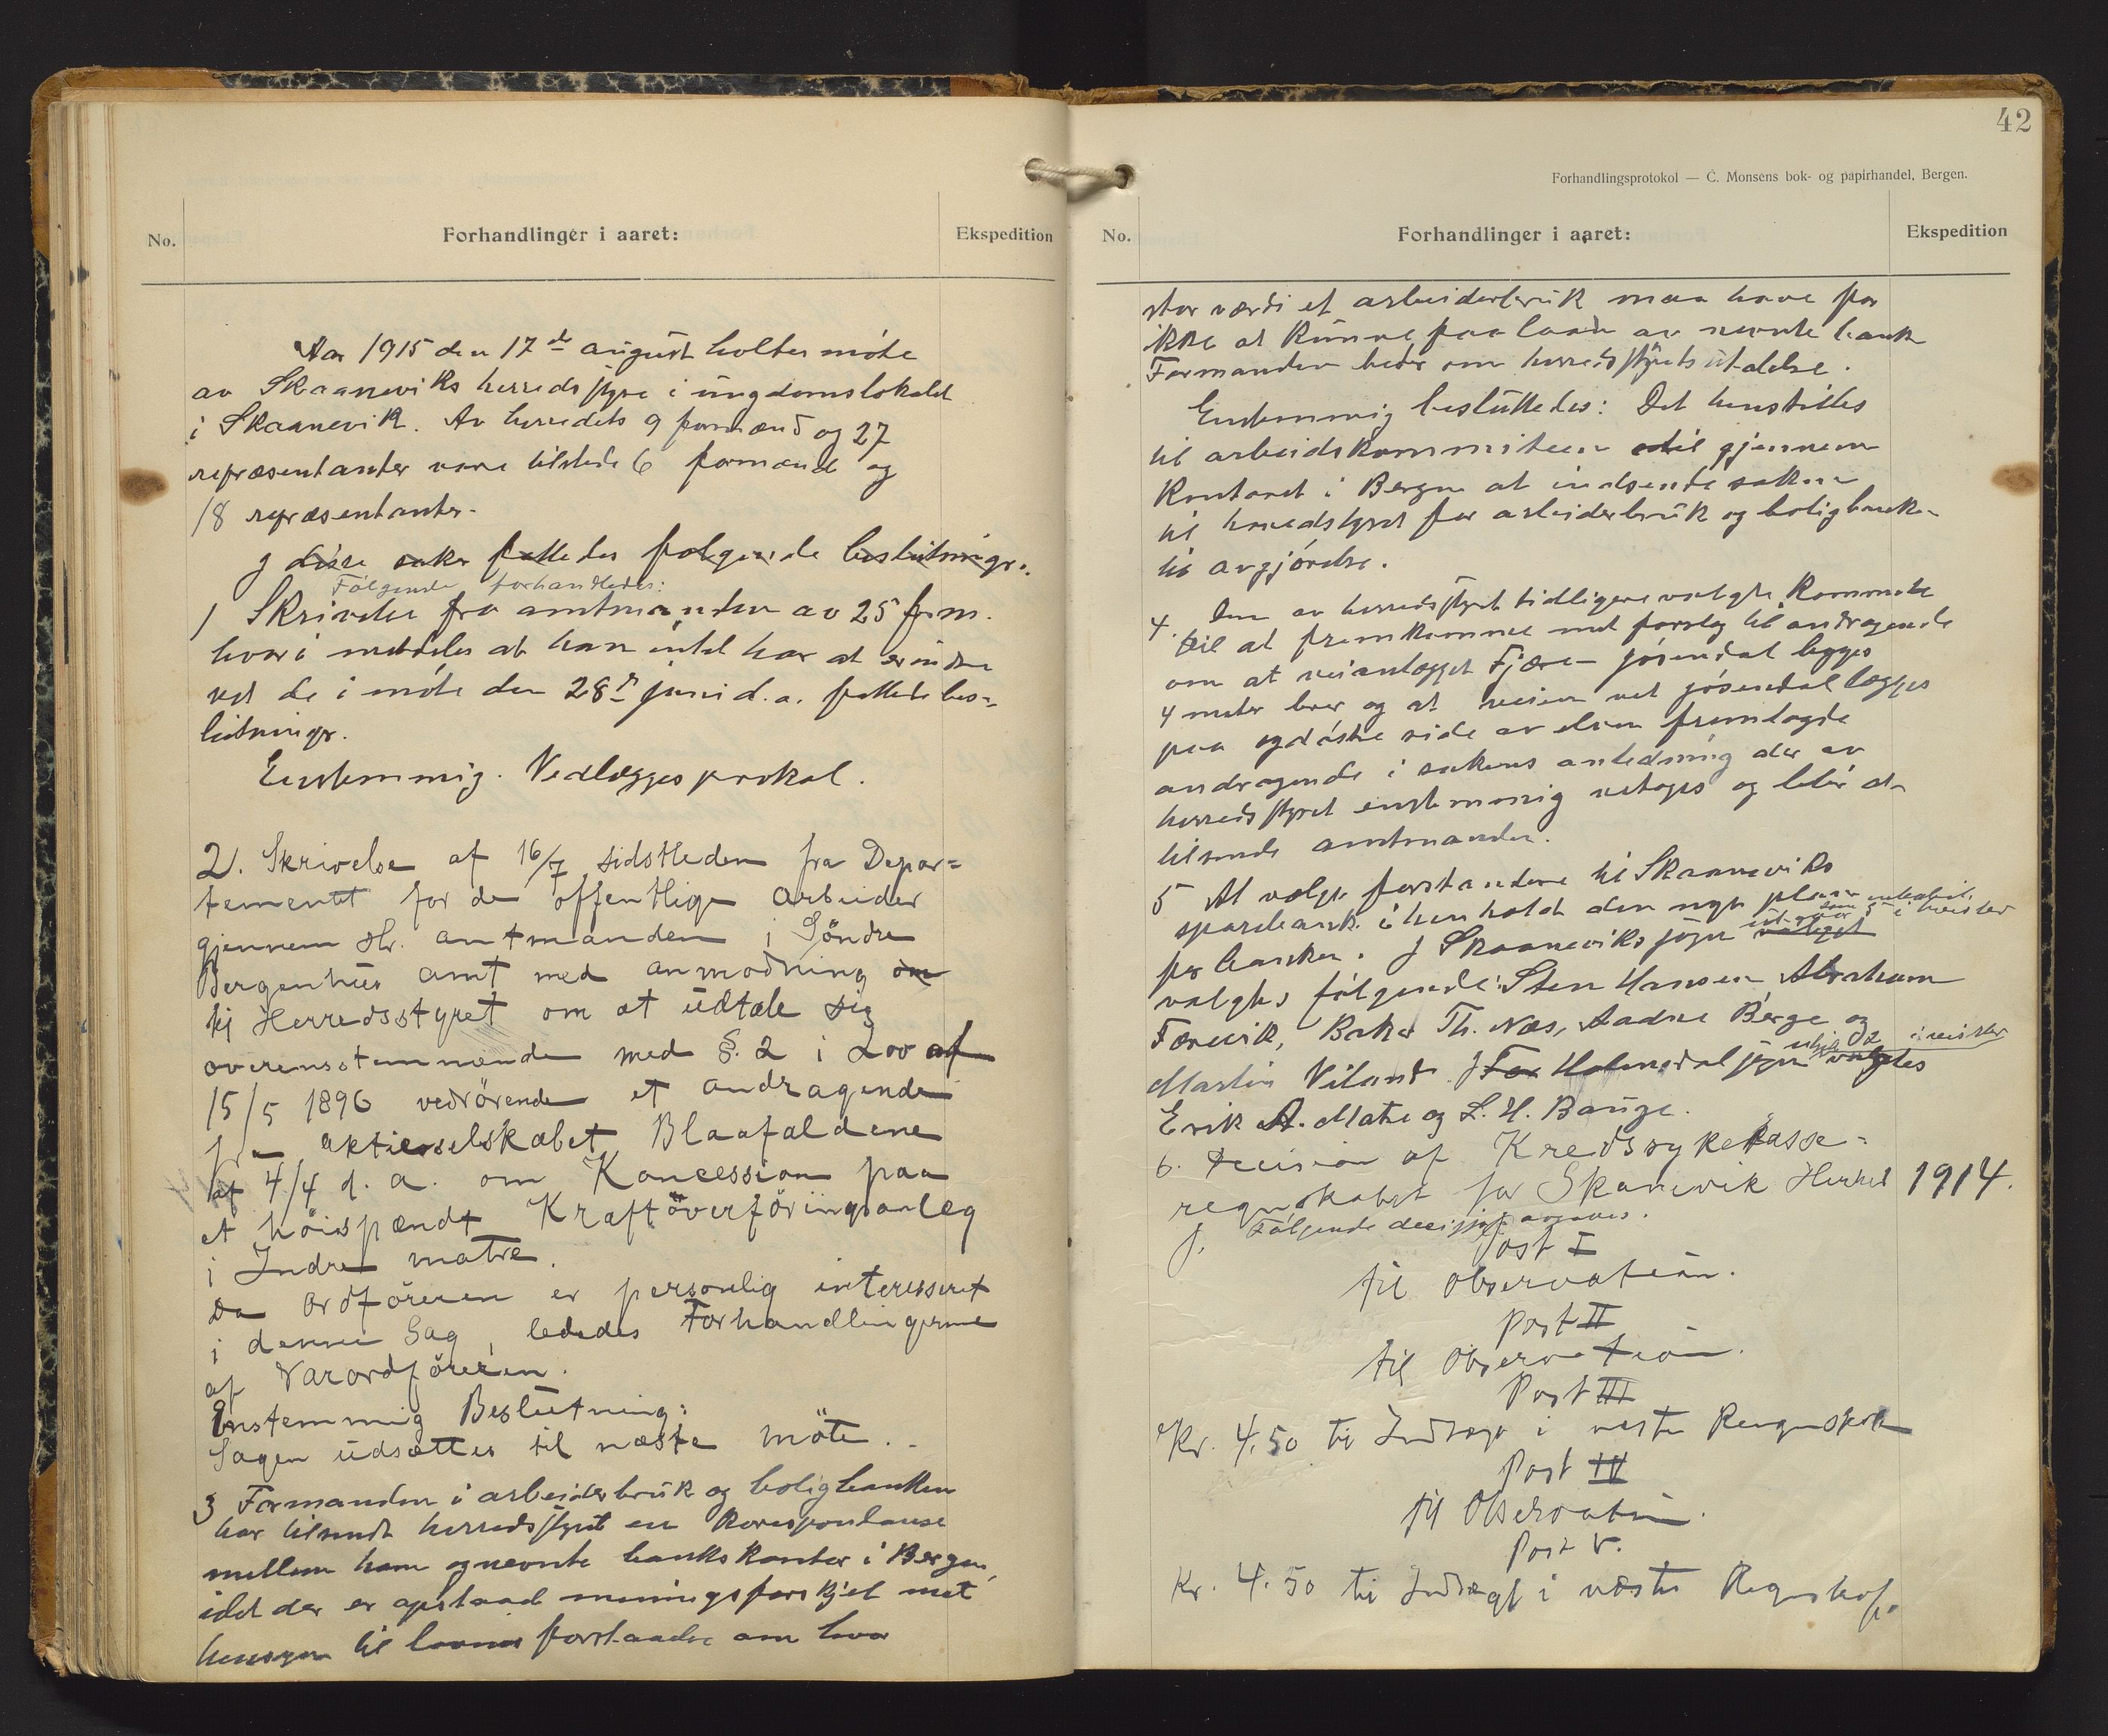 No.
Forhandlinger i aaret:
Ekspedition
Aar 1915 den 17de august holtes möte
av Skaaneviks herredsstyre i ungdomslokalet
i Skaanevik. Av herredets 9 formænd og 27
repræsentanter vare tilstede 6 formænd og
18 repræsentanter.
I disse saker fattedes følgende beslutninger.
Følgende forhandledes:
1 Skrivelse fra amtmanden av 25 f.m.
hvori meddeles at han intet har at erindre
ved de i möte den 28de juni d.a. fattede bes=
lutninger.
Enstemmig. Vedlægges protokol.
2. Skrivelse af 16/7 sidstleden fra Depar=
tementet for de offentlige Arbeider
gjennem Hr. amtmanden i Söndre
Bergenhus amt med anmodning om
til Herredsstyret om at udtale sig
overensstemmende med §. 2 i Lov af
15/5 1896 vedrörende et andragende
fra aktieselskabet Blaafaldene
af 4/4 d. a. om Koncession paa
et höispændt Kraftöverföringsanleg
i Indre matre.
Da Ordföreren er personlig interesseret
i denne Sag, lededes Forhandlingerne
af Varordföreren.
Enstemmig Beslutning:
Sagen udsættes til næste möte.
3 Formanden i arbeiderbruk og boligbanken
har tilsendt herredsstyret en korespondanse
mellem ham og nevnte bankskontor i Bergen,
idet der er opstaad meningsforskjel met
hensyn til lovens forstaaelse om hvor
42
Forhandlingsprotokol — C. Monsens bok- og papirhandel, Bergen.
No.
Forhandlinger i aaret:
Ekspedition
stor værdi et arbeiderbruk maa have for
ikke at kunne faa laan av nevnte bank
Formanden beder om herredsstyrets utalelse.
Enstemmig besluttedes: Det henstilles
til arbeidskommiteen at gjennem
Kontoret i Bergen at indsende saken
til hovedstyret for arbeiderbruk og boligbanken
til avgjörelse.
4. Den av herredsstyret tidligere valgte Kommite
til at fremkomme med forslag til andragende
om at veianlægget Fjære – Jösendal legges
4 meter brer og at veien ved Jösendal lægges
paa side av elven fremlagde
andragende i sakens anledning der av
herredsstyret enstemmig vetoges og blir at
tilsende amtmanden.
5 At vælge forstandere til Skaaneviks
sparebank i henhold den nye plan
for banken. I Skaaneviks sogn
valgtes følgende: Sten Hansen, Abraham
Færevik, Th. Næs, Aadne Berge og
Martin Viland. I For Holmedal sogn valgtes
Erik A. Matre og L. H. Bauge.
6. Decision af Kredssykekasse=
regnskabet for Skanevik Herred 1914.
Følgende decisjon avgaves.
Post I
til Observation.
Post II
til Observation.
Post III
Kr. 4,50 til Indtægt i næste Regnskab
Post IV
til Observation.
Post V.
Kr. 4.50 til Indtægt i næste Regnskap.